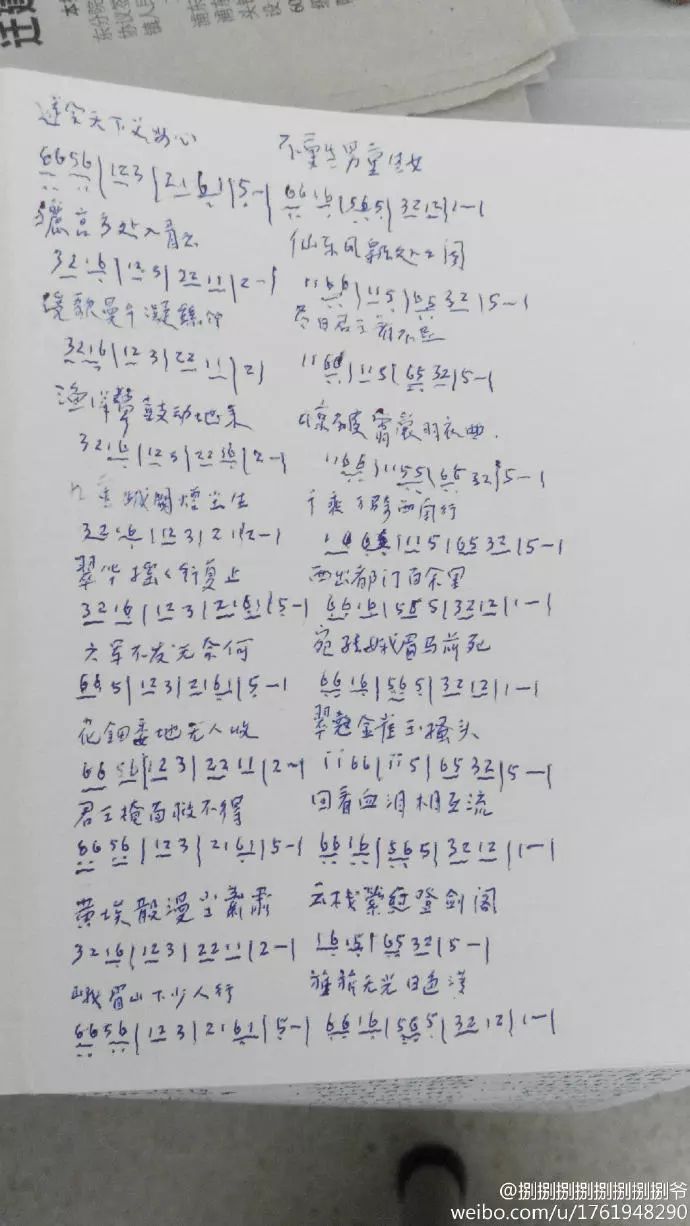 遂令天下父母心 不重生男重生女
6656|123|2161|5-| 6616|565|3212|1-|
骊宫高处入青云 仙乐风飘处处闻
3216|123|2211|2-| 1166|115|6532|5-|
缓歌曼午凝丝竹 尽日君王看不足
3216|123|2211|2| 1166|115|6532|5-|
渔阳鼙鼓动地来 惊破霓裳羽衣曲.
3216|123|2216|2-| 1166|1155|6532|5-|
九重城闕烟尘生 千乘万骑西南行
3216|123|21|2-| 1166|115|6532|5-|
翠华摇々行复止 西出都门百余里
3216|123|2161|5-| 6616|565|3212|1-|
六军不发无奈何 宛转蛾眉马前死
665|123|2161|5-| 6616|565|3212|1-|
花钿委地无人收 翠翘金雀玉搔头
6656|123|2211|2-| 1166|115|6532|5-|
君王掩面救不得 回看血泪相互流
6656|123|2161|5-| 6616|565|3212|1-|
黄埃散漫 云栈萦 登剑阁
3216|123|2211|2-| 1615|6532|5-|
峨眉山下少人行 旌旂无光日色薄
6656|123|2161|5-| 6616|565|3212|1-|
迁建
@捌捌捌捌捌捌捌捌捌爷
weibo.com/u/1761948290